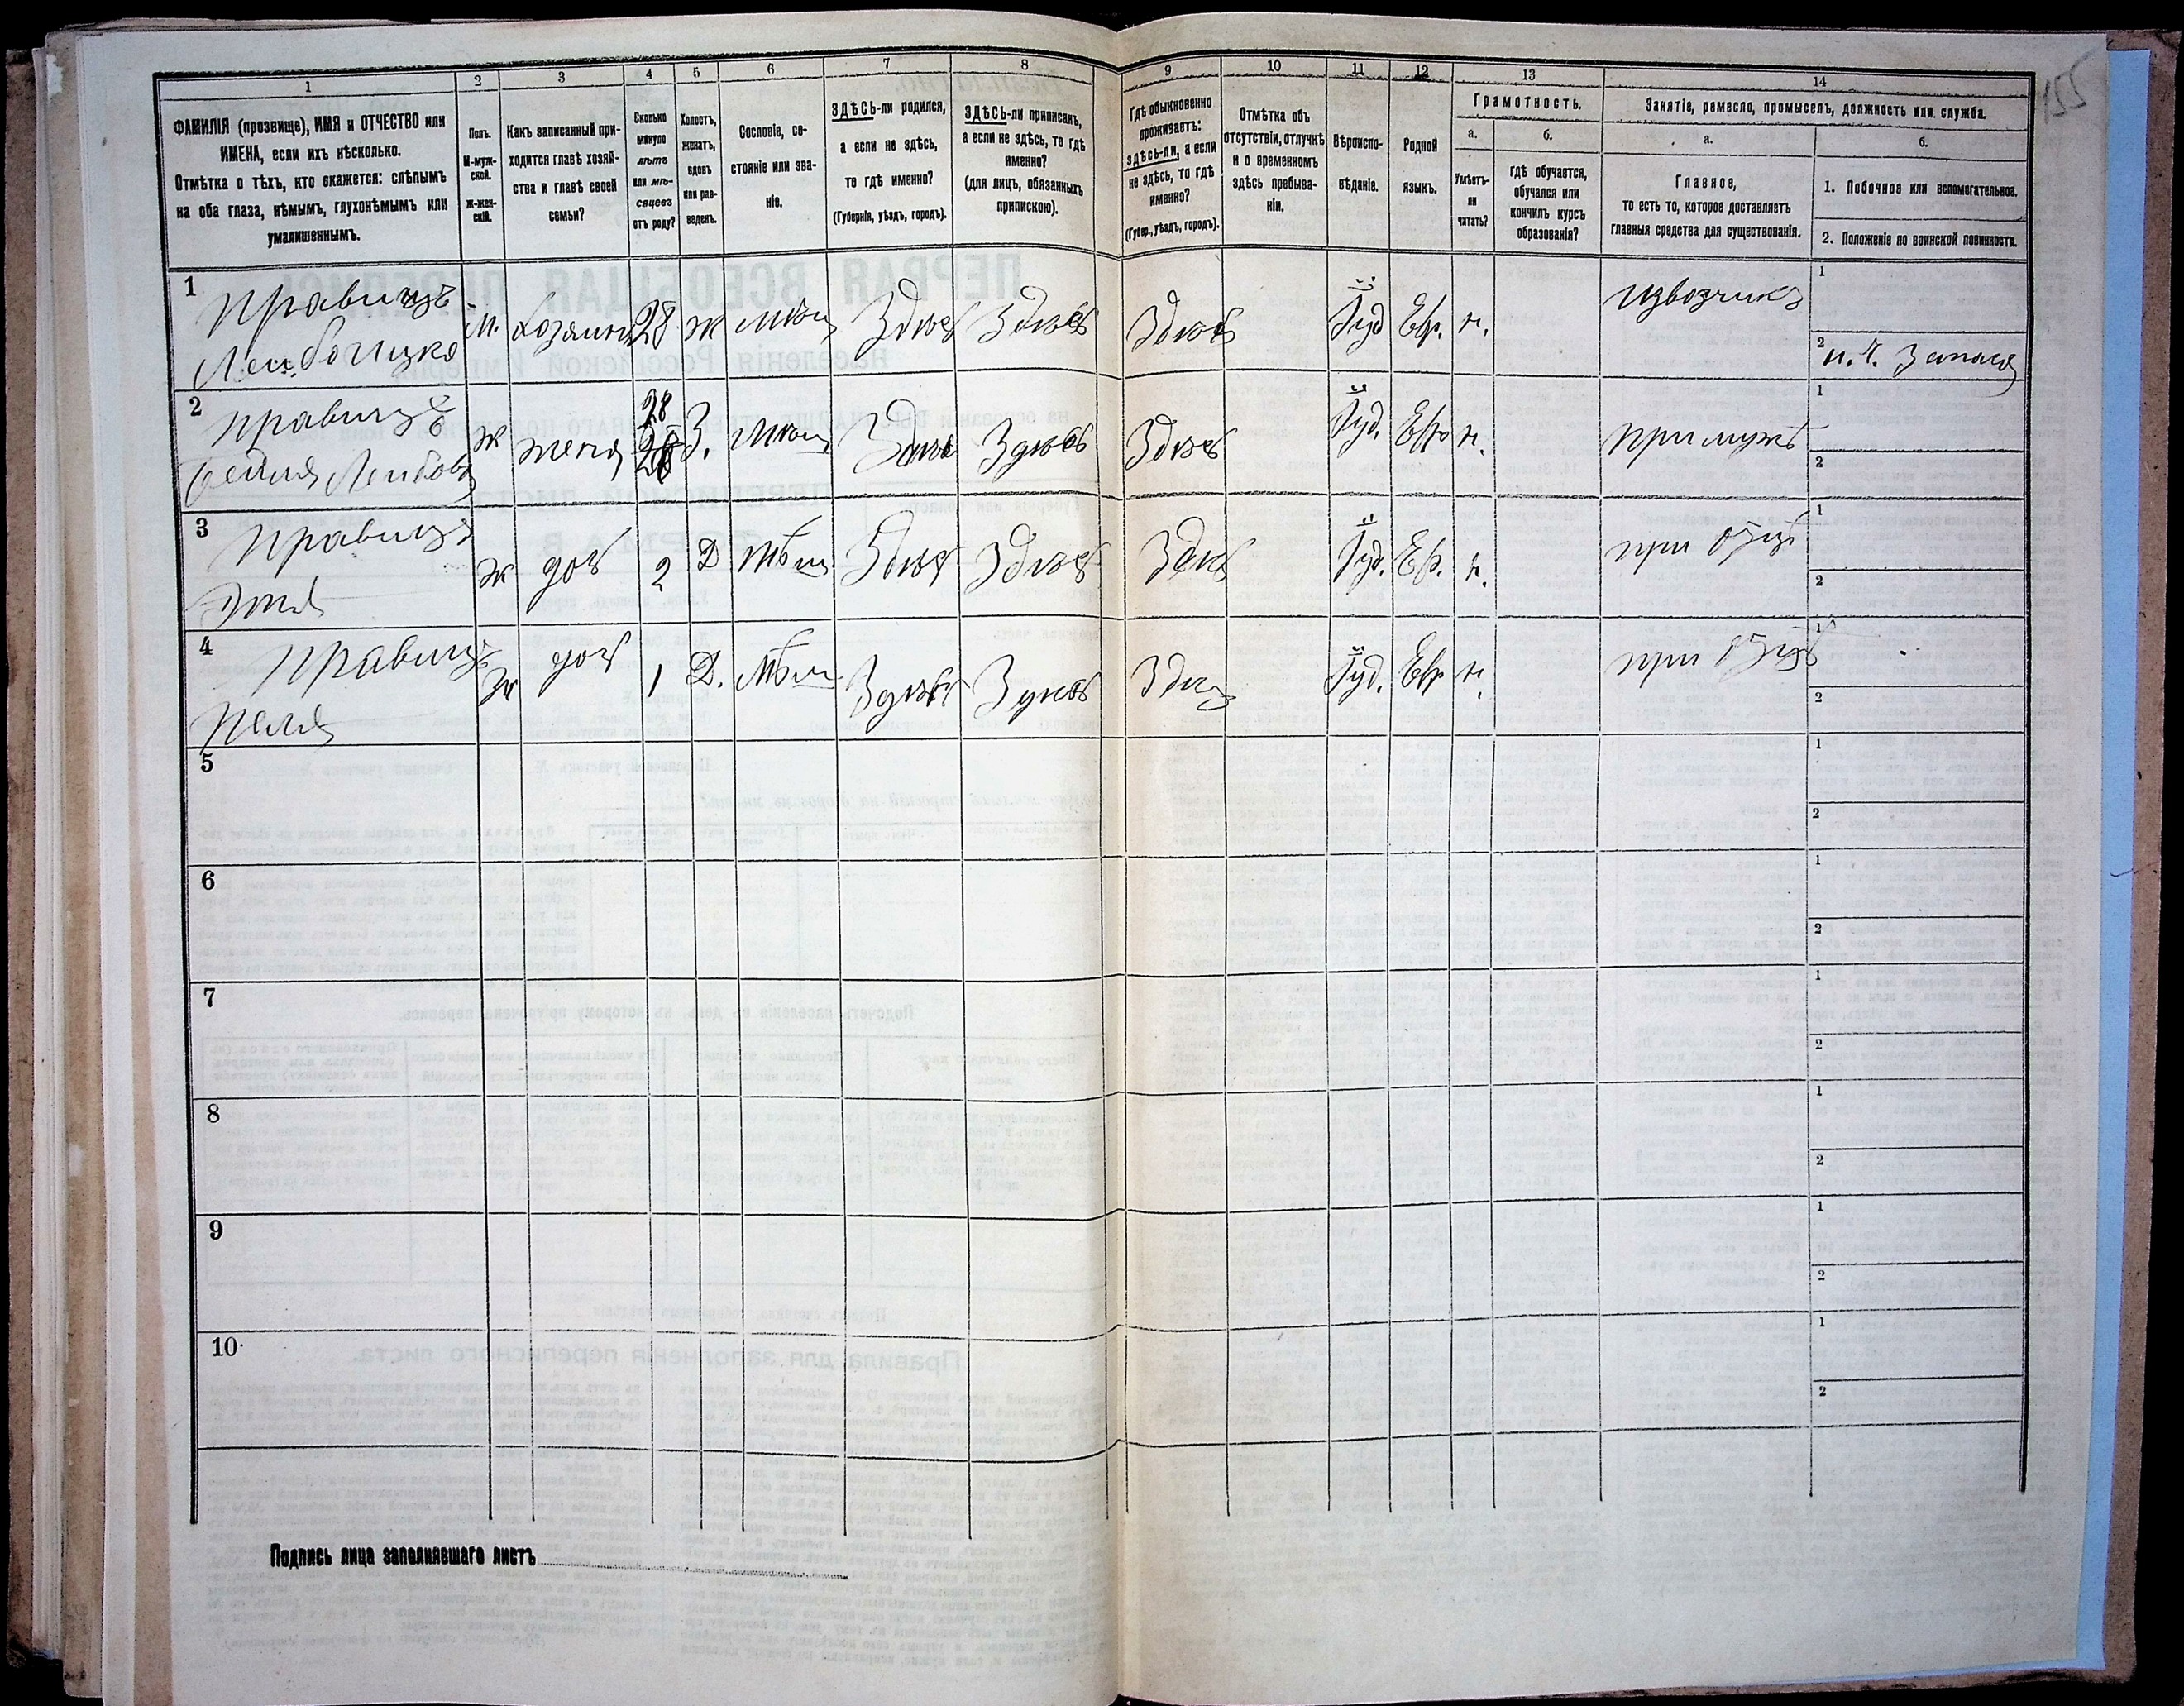 155
1
2
3
4
5
6
7
8
9
10
11
12
13
14
ФАМИЛІЯ (прозвище), ИМЯ и ОТЧЕСТВО или
ИМЕНА, если ихъ нѣсколько.
Отмѣтка о тѣхъ, кто окажется: слѣпымъ
на оба глаза, нѣмымъ, глухонѣмымъ или
умалишеннымъ.
Полъ.
М-муж-
ской.
Ж-жен-
скій.
Какъ записанный при-
ходится главѣ хозяй-
ства и главѣ своей
семьи?
Сколько
минуло
лѣтъ
или мѣ-
сяцевъ
отъ роду?
Холостъ,
женатъ,
вдовъ
или раз-
веденъ.
Сословіе, со-
стояніе или зва-
ніе.
ЗДѢСЬ-ли родился,
а если не здѣсь,
то гдѣ именно?
(Губернія, уѣздъ, городъ).
ЗДѢСЬ-ли приписанъ,
а если не здѣсь, то гдѣ
именно?
(для лицъ, обязанныхъ
припискою).
Гдѣ обыкновенно
проживаетъ:
здѣсь-ли, а если
не здѣсь, то гдѣ
именно?
(Губер., уѣздъ, городъ).
Отмѣтка объ
отсутствіи, отлучкѣ
и о временномъ
здѣсь пребыва-
ніи.
Вѣроиспо-
вѣданіе.
Родной
языкъ.
Грамотность.
а.
Умѣетъ-
ли
читать?
б.
гдѣ обучается,
обучался или
кончилъ курсъ
образованія?
Занятіе, ремесло, промыселъ, должность или служба.
а.
Главное,
то есть то, которое доставляетъ
главныя средства для существованія.
б.
1. Побочное или вспомогательное.
2. Положеніе по воинской повинности.
1
Правицъ
м. хозяинъ 28 ж мѣщ Здѣсь Здѣсь Здѣсь Іуд Евр. н. извозчикъ
1
2
2
Правицъ
Бейля Лейбова
ж жена 28 З. мѣщ Здѣсь Здѣсь Іуд. Евр н. при мужѣ
1
2
3
Правицъ
ж доч 2 Д мѣщ. Здѣсь Здѣсь Здѣсь Іуд. Ев. н. при отцѣ
1
2
4
Правицъ
ж доч 1 Д. мѣщ Здѣсь Здѣсь Здѣсь Іуд. Евр н. при отцѣ
1
2
5
1
2
6
1
2
7
1
2
8
1
2
9
1
2
10
1
2
Подпись лица заполнявшаго листъ